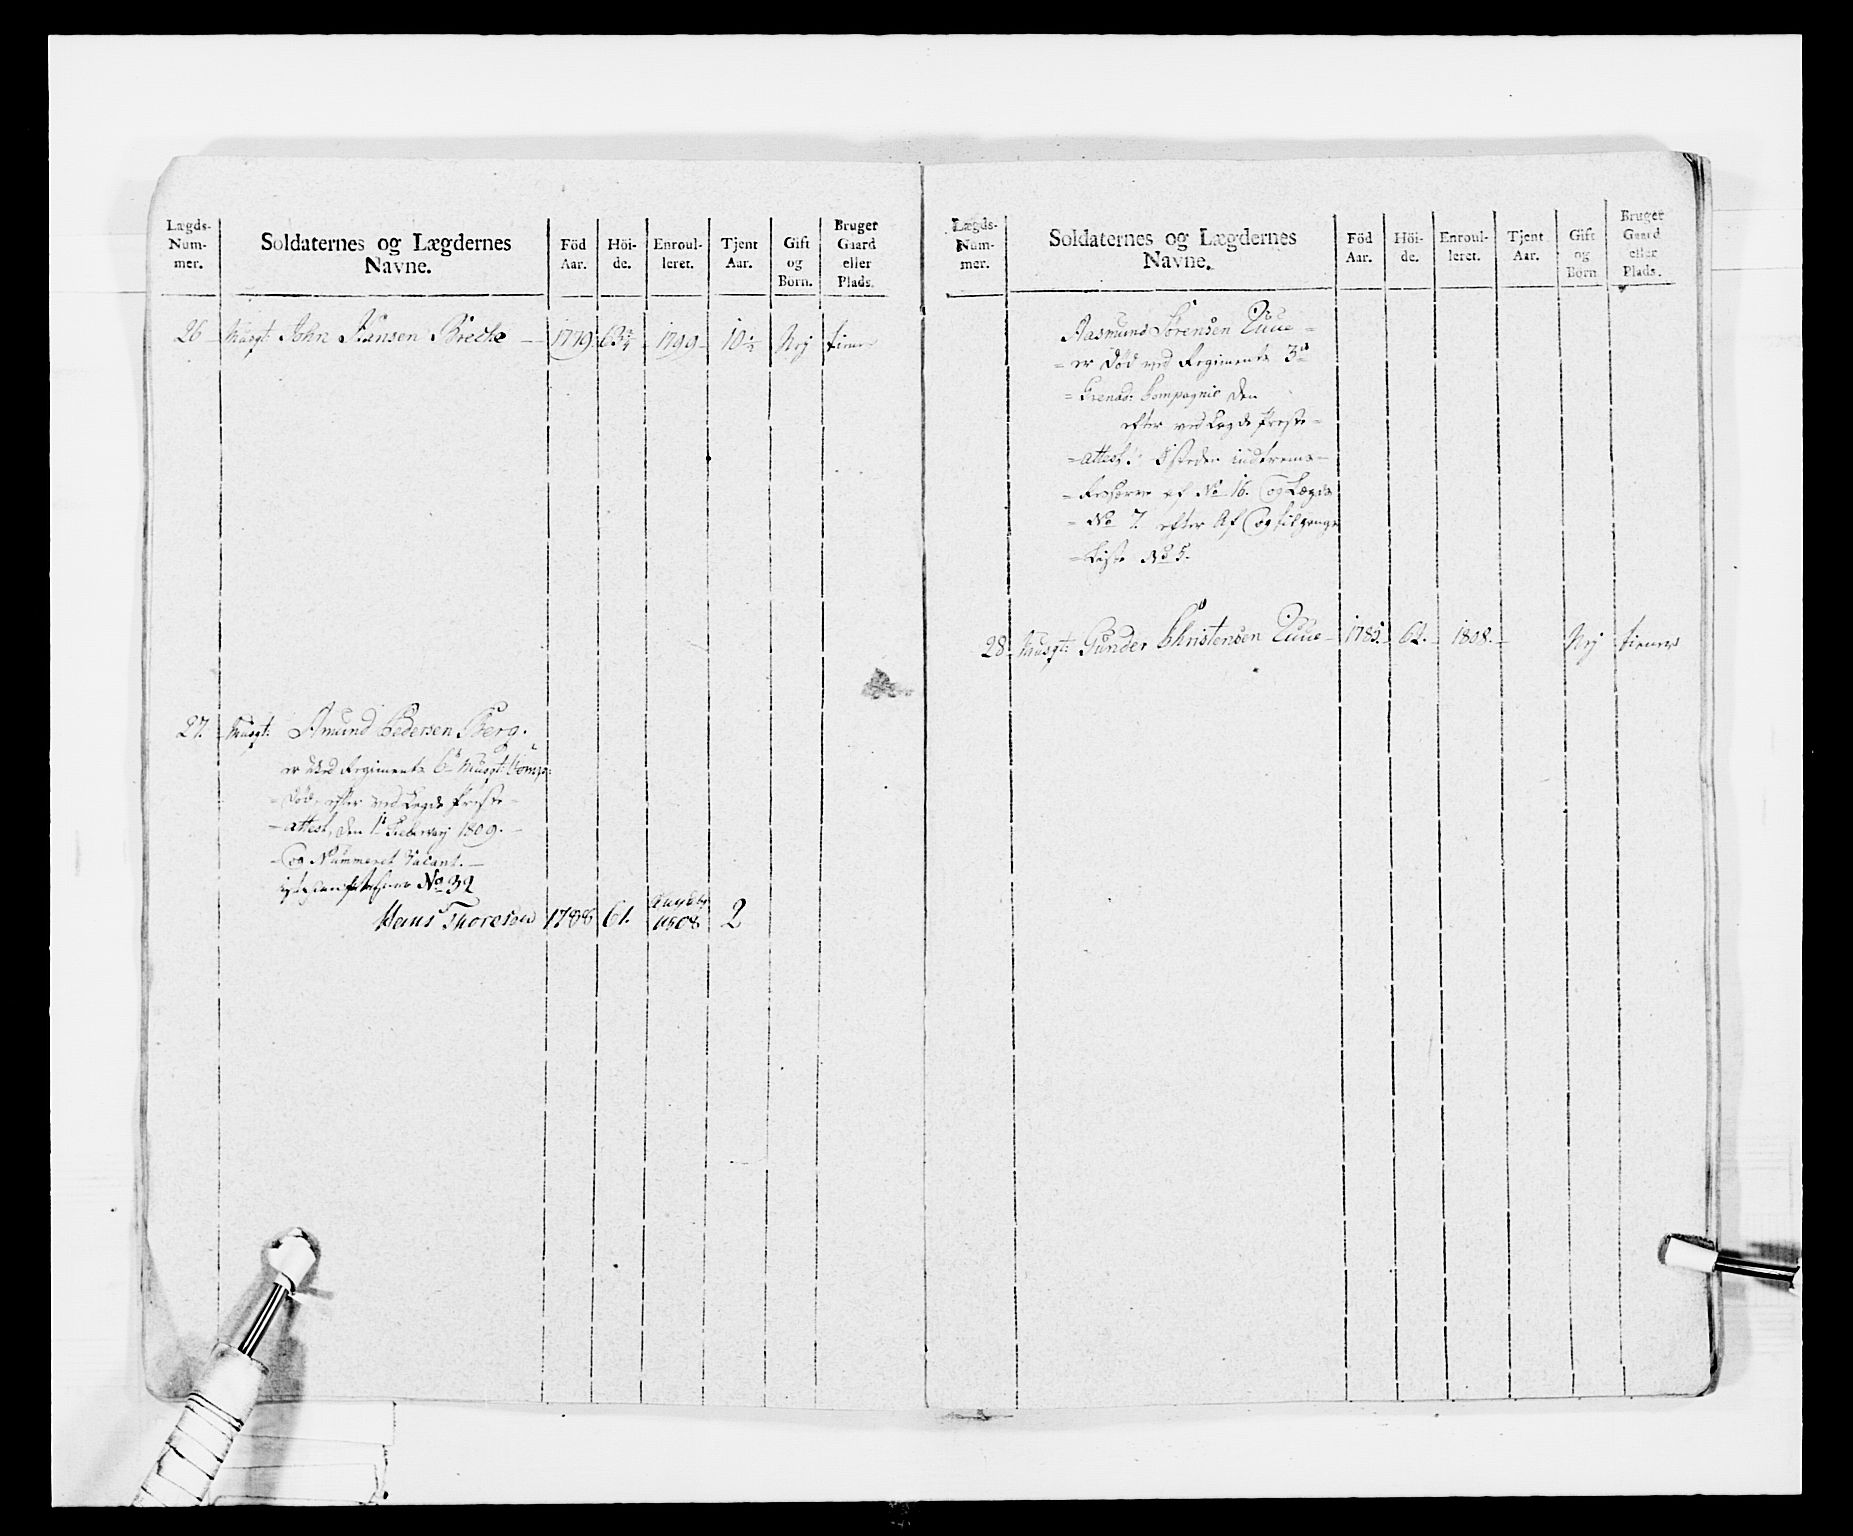 Lægds-Num-mer.
Soldaternes og Lægdernes Navne.
Föd Aar.
Höi-de.
Enroul-leret.
Tjent Aar.
Gift og Börn.
Bruger Gaard eller Plads.
26 Musqt John Hansen Breche 1779. 63¾ 1799 10½ Nej tiener
27. Musqt: Amund Pedersen Berg.
er ved Regiments 6te Musqt: Comp:
Död, efter vedLagde Præste
attest, den 1te Februarj 1809.
Og Nummeret Vacant.
No 32
Hans Thoresen 1788 61. 1808 2
Lægds-Num-mer.
Soldaternes og Lægdernes Navne.
Föd Aar.
Höi-de.
Enroul-leret.
Tjent Aar.
Gift og Börn
Bruger Gaard eller Plads.
Aasmund Sörensen Tuue
er Död ved Regiments 3de
Grenad: Compagnie den
efter vedLagde Præste
attest: Isteden
Reserve af No 16. Og Lægds
No 7. efter Af Og tilgangs
Liste No 5.
28 Musqt: Gunder Christensen Tuue 1785. 62. 1808. Nej tiener